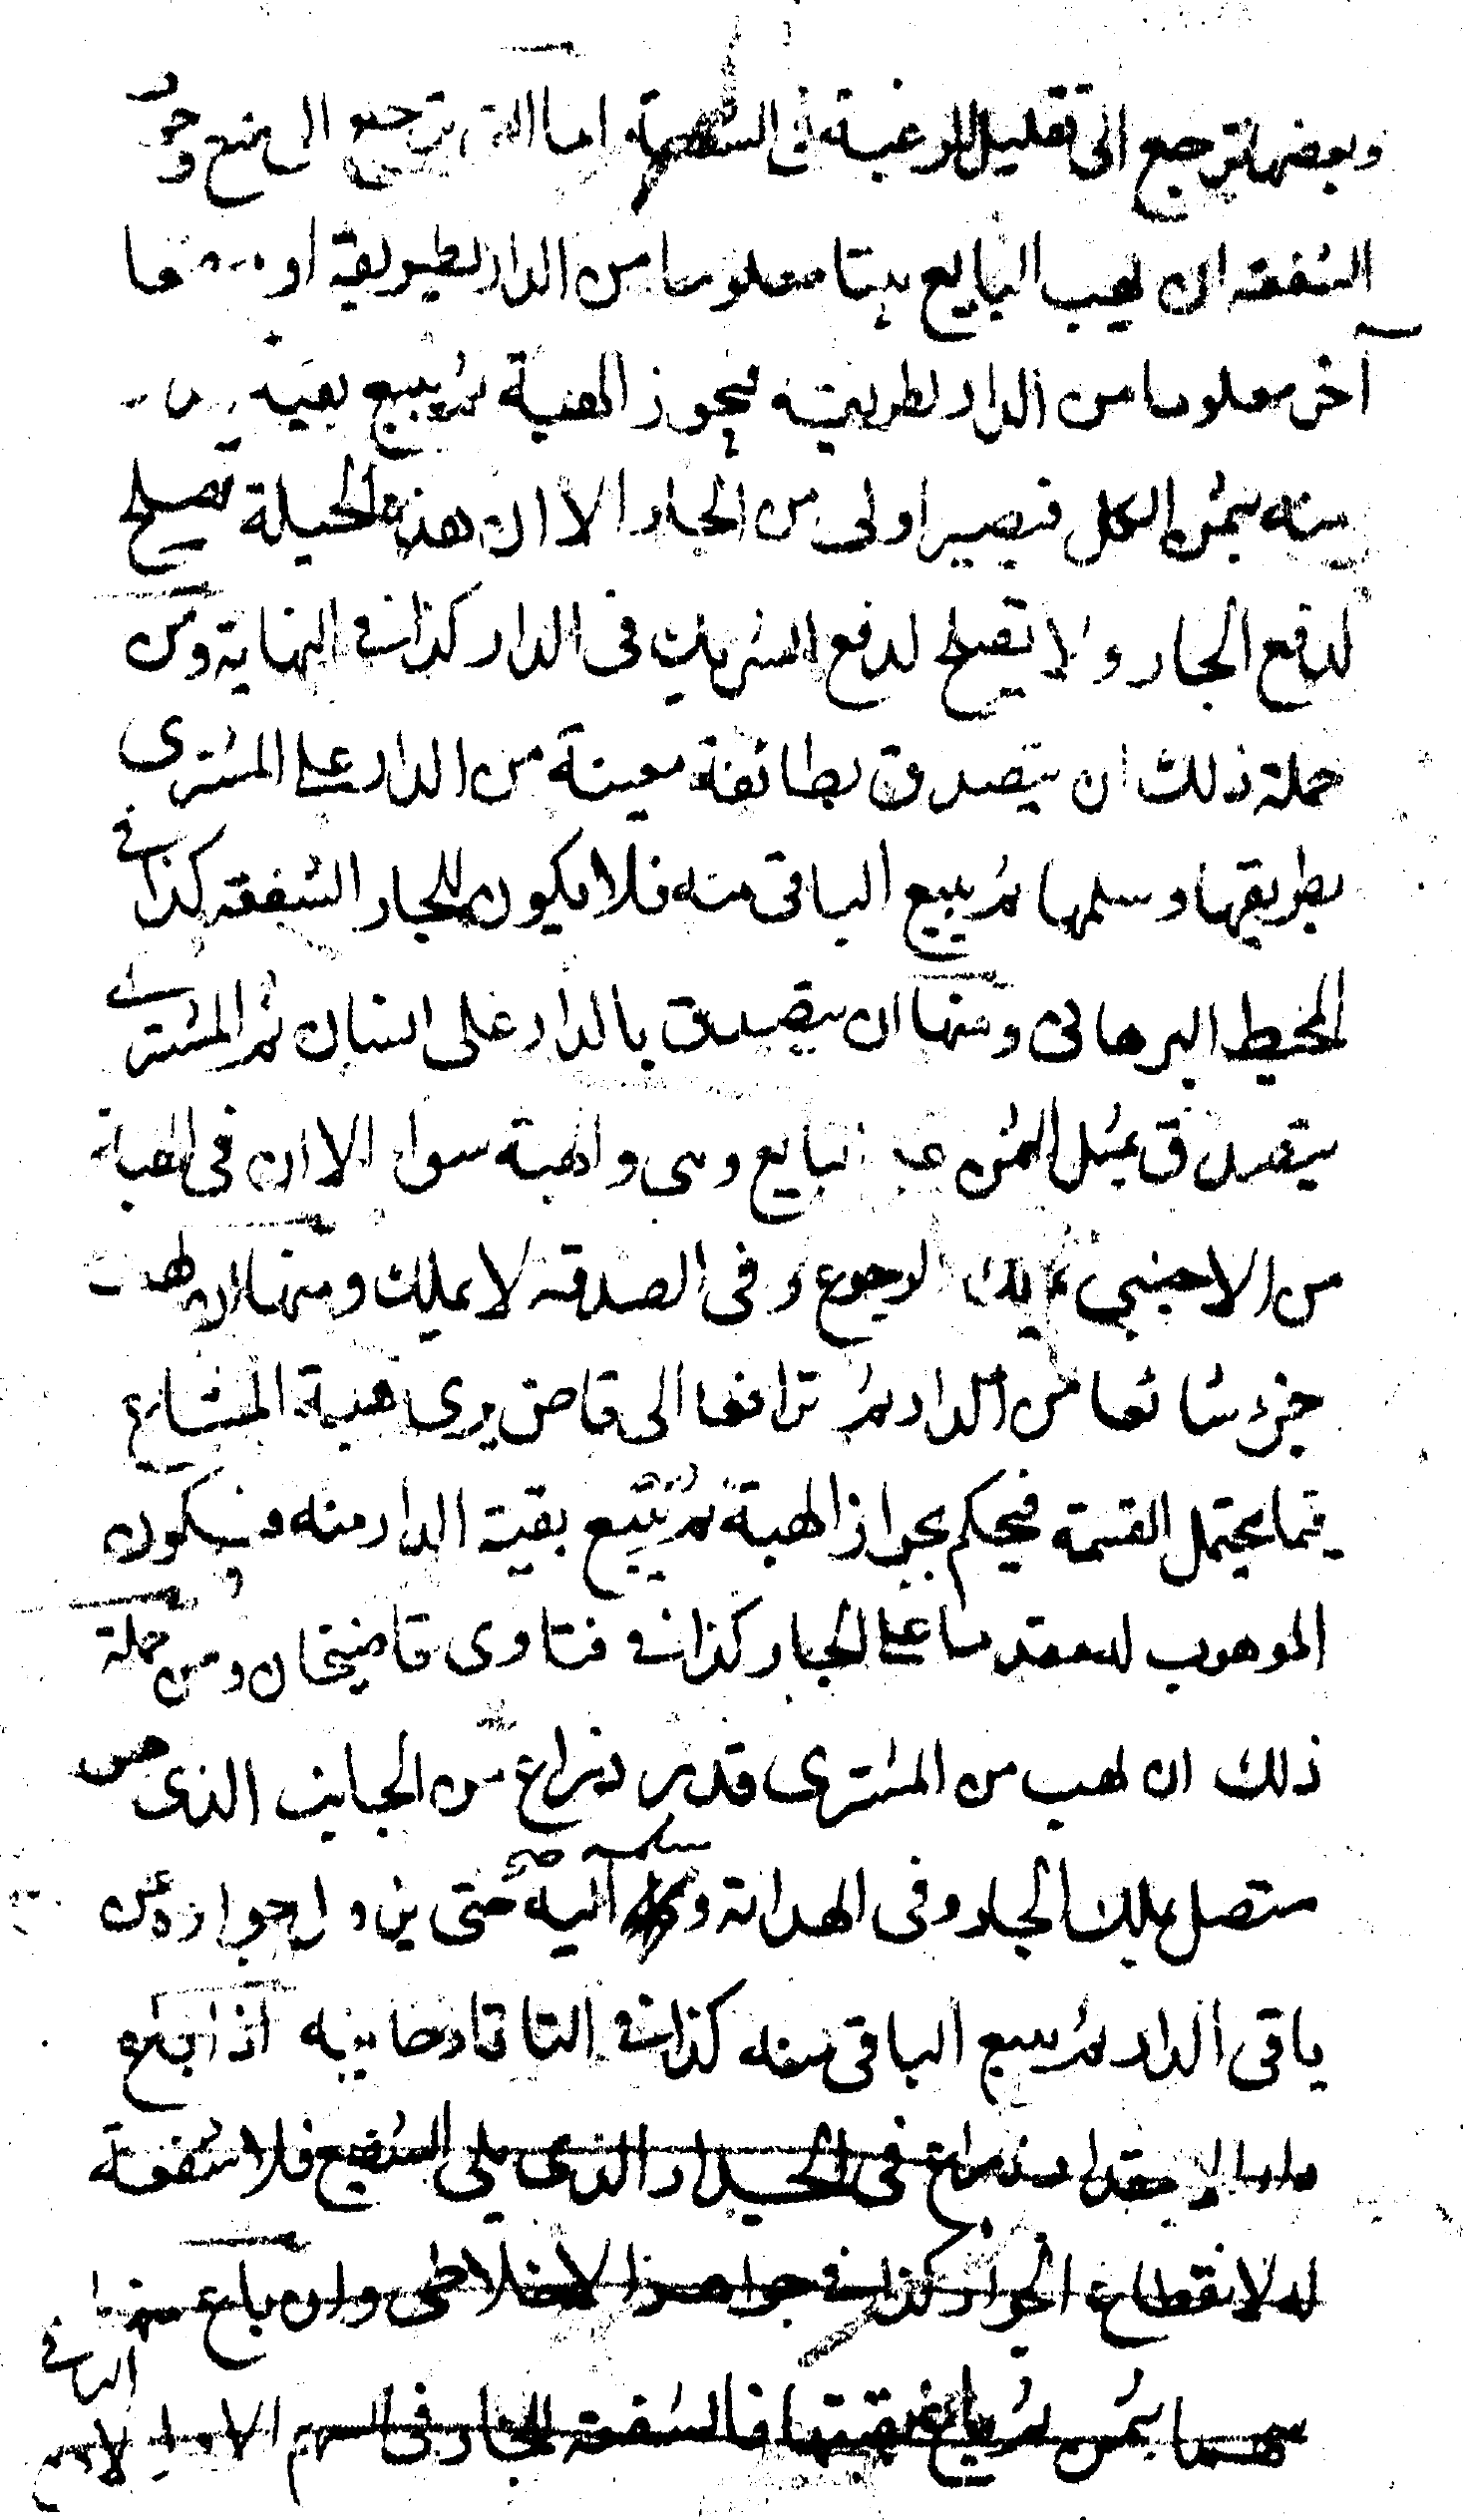 وبعضها ترجع الى تقليل الرغبة فى الشفعة اما التى ترجع الى منع وجوب
الشفعة ان يهب البايع بيتا معلوما من الدار بطريقه او موضعا
آخر معلوما من الدار بطريقه فيجوز الهبة ثم يبيع بقية الدار
منه بثمن الكل فيصير اولى من الجار الا ان هذه الحيلة تصلح
لدفع الجار ولا تصلح لدفع الشريك فى الدار كذا فى النهاية ومن
جملة ذلك ان يتصدق بطائفة معينة من الدار على المشترى
بطريقها وسلمها ثم يبيع الباقى منه فلا يكون للجار الشفعة كذا فى
المحيط البرهانى ومنها ان يتصدق بالدار على انسان ثم المشترى
يتصدق بمثل الثمن على البايع وهى والهبة سواء الا ان فى الهبة
من الاجنبى يملك الرجوع وفى الصدقة لا يملك ومنها ان يهب
جزء شائعا من الدار ثم ترافعا الى قاض يرى هبة المشاع
فيما يحتمل القسمة فيحكم بجواز الهبة ثم يبيع بقية الدار منه فيكون
الموهوب له مقدما على الجار كذا فى فتاوى قاضيخان ومن جملة
ذلك ان يهب من المشترى قدر ذراع من الجانب الذى هو
متصل بملك الجار وفى الهداية وسلمه اليه صح حتى يزول جواره عن
باقى الدار ثم يبيع الباقى منه كذا فى التاتارخانيه اذا باع
دارا الا مقدار ذراع فى الحد الذى يلى الشفيع فلا شفعة
له لانقطاع الجوار كذا فى جواهر الاخلاطى وان باع منها
سهما بثمن ثم باع بقيتها فالشفعة للجار فى السهم الاول لا